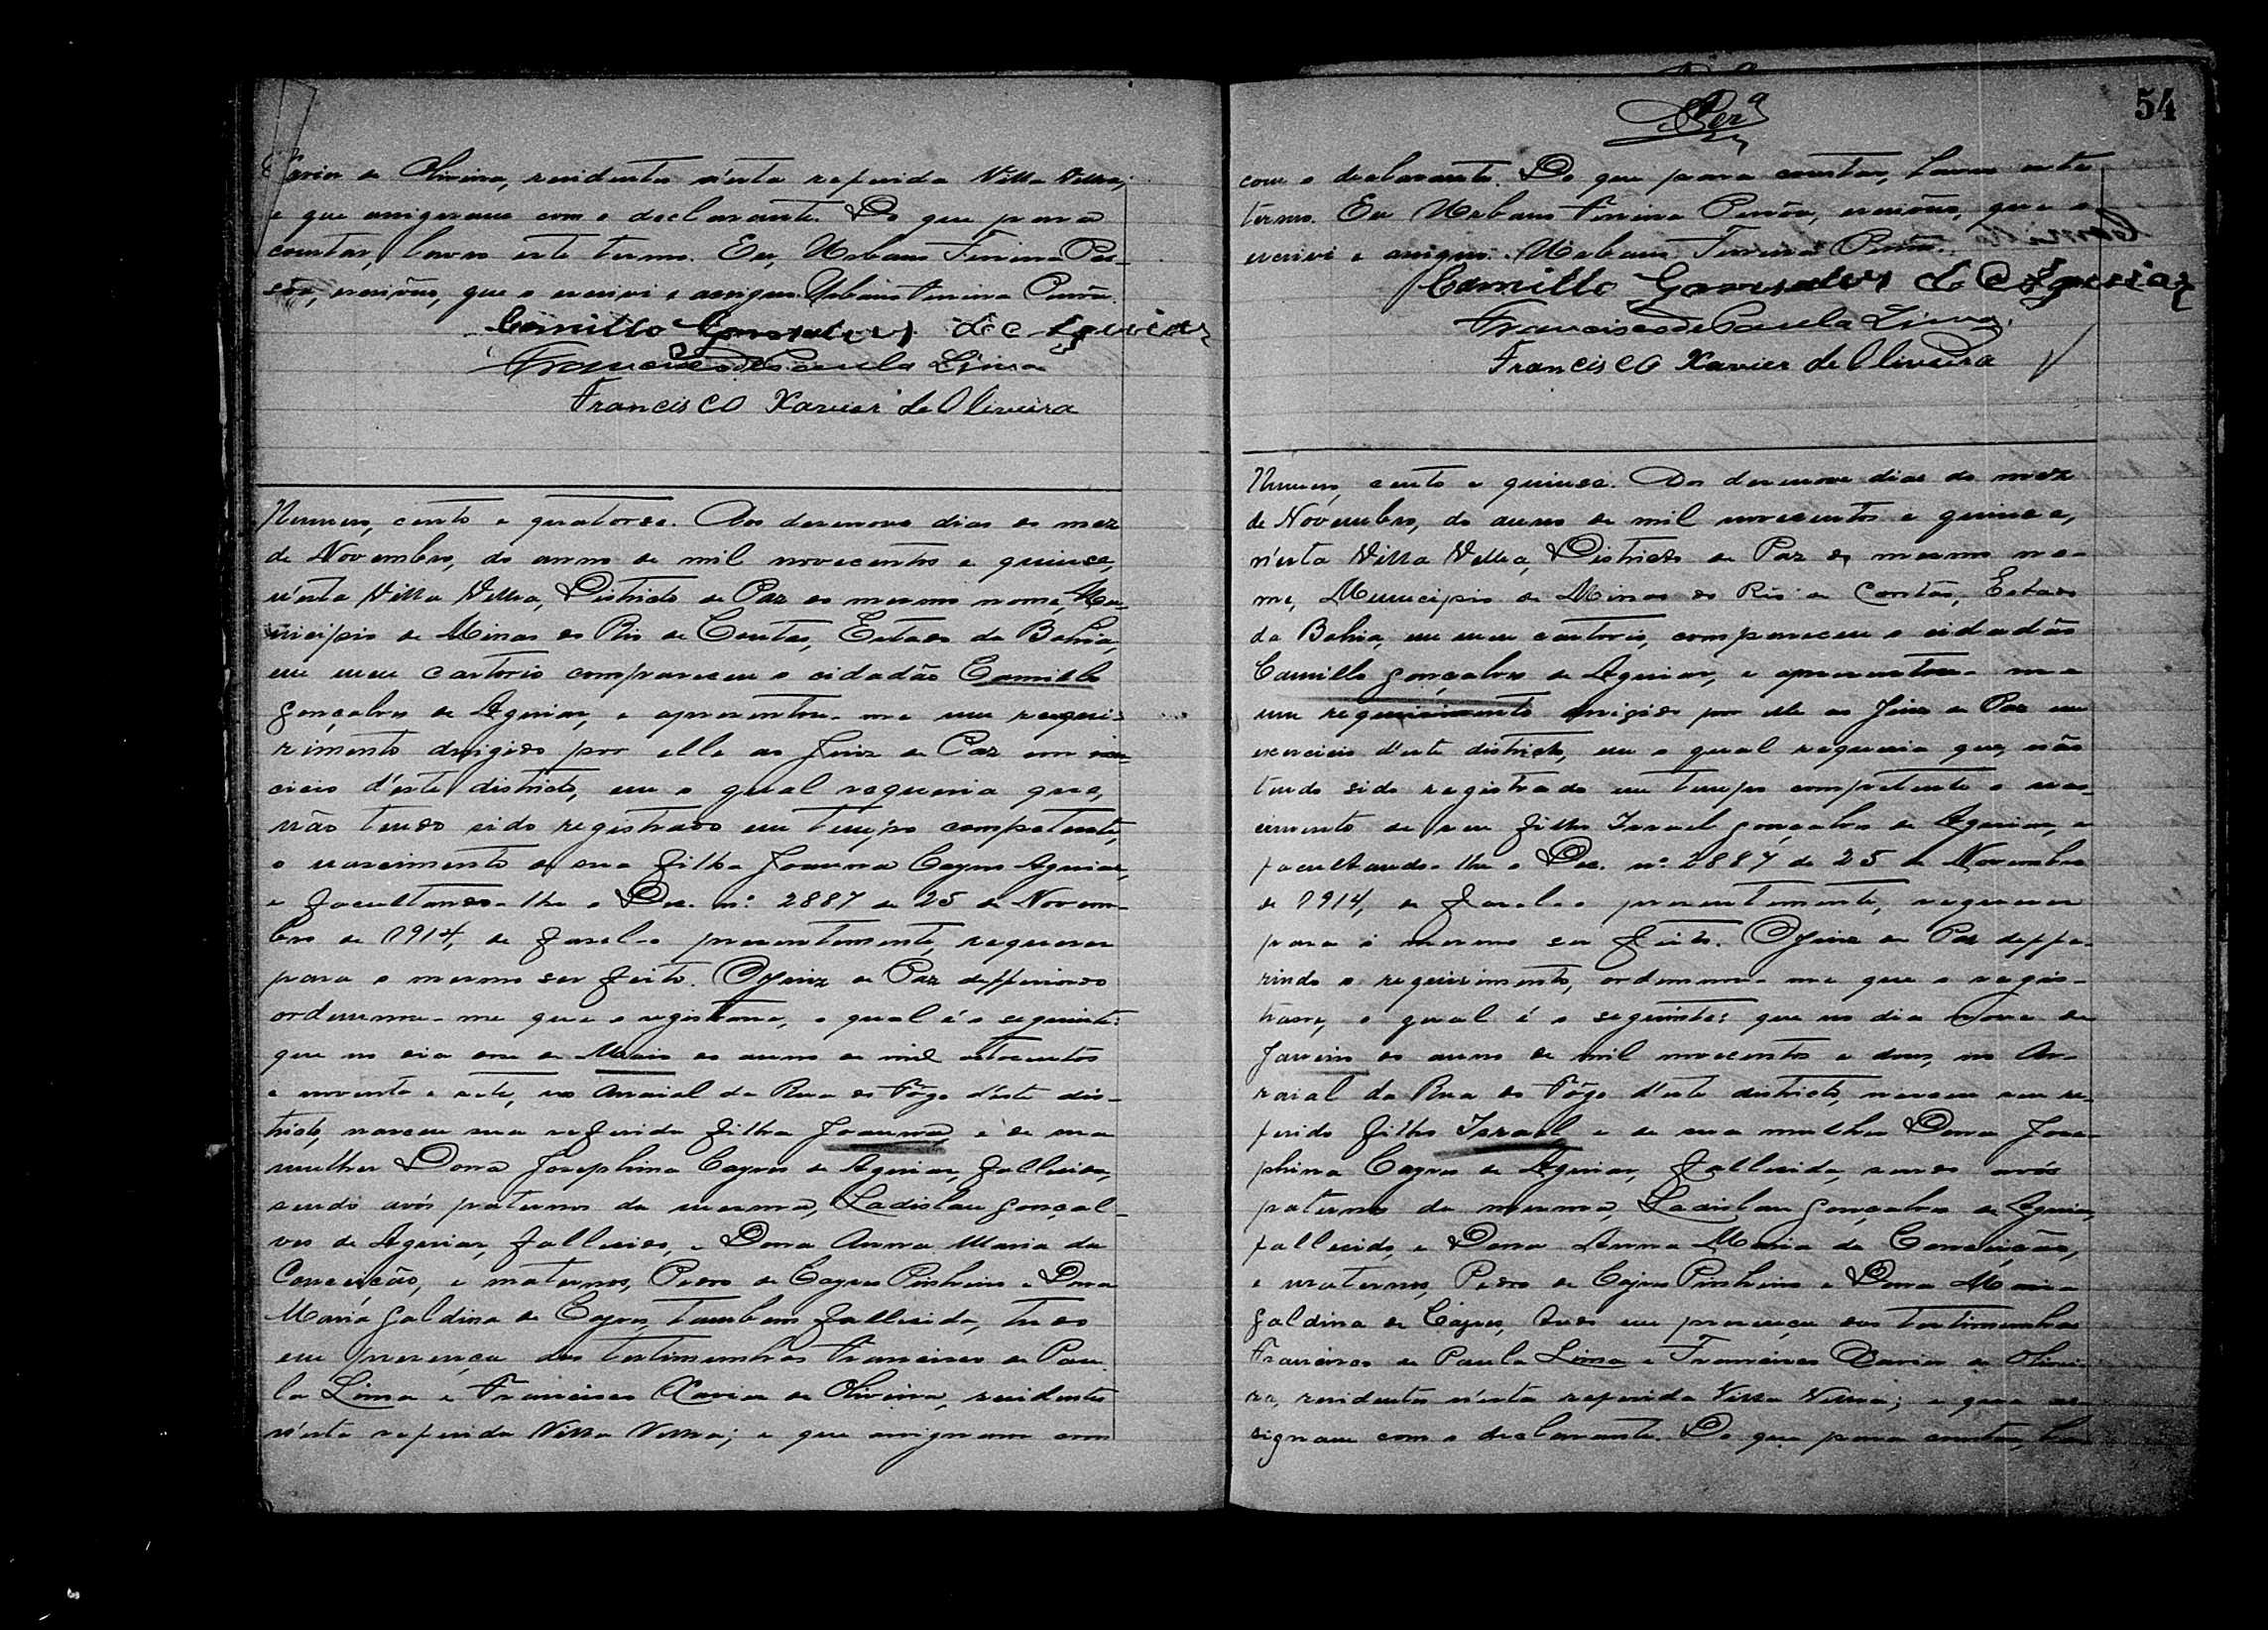 Xavier de Oliveira, residentes n'esta referida Villa Velha;
e que assignaram com o declarante. Do que para
constar, lavro este termo. Eu, Urbano Ferreira Pes-
sôa, escrivão, que o escrivi e assigno. Urbano Ferreira Pessôa.
Camillo Gonsalves de Aguiar
Francisco de Paula Lima
Francisco Xavier de Oliveira
Numero, cento e quatorse. Aos desenove dias do mez
de Novembro, do anno de mil novecentos e quinse,
n'esta Villa Velha, Districto de Paz do mesmo nome, Mu-
nicipio de Minas do Rio de Contas, Estado da Bahia,
em meu cartorio compareceu o cidadão Camillo
Gonçalves de Aguiar, e apresentou-me um requi-
rimento dirigido por elle ao Juiz de Paz em exer-
cicio d'este districto, em o qual requeria que,
não tendo sido registrado em tempo competente,
o nascimento de sua filha Joanna Cayres Aguiar,
e facultando-lhe o Dec. nº 2887 de 25 de Novem-
bro de 1914, de fasel-o presentemente, requerer
para o mesmo ser feito. O Juiz de Paz defferindo
ordenou-me que o registrasse, o qual é o seguinte:
que no dia onse de Maio do anno de mil oitocentos
e noventa e sete, no Arraial da Rua do Fôgo d'este dis-
tricto, nasceu sua referida filha Joanna, e de sua
mulher Dona Josephina Cayres de Aguiar, fallecida,
sendo avós paternos da mesma, Ladislau Gonçal-
ves de Aguiar, fallecido, e Dona Anna Maria da
Conceição, e maternos, Pedro de Cayres Pinheiro e Dona
Maria Galdina de Cayres, tambem fallecida, tudo
em presença das testimunhas Francisco de Pau-
la Lima e Francisco Xavier de Oliveira, residentes
n'esta referida Villa Velha; e que assignam com
54
com o declarante. Do que para constar, lavro este
termo. Eu Urbano Ferreira Pessôa, escrivão, que o
escrivi e assigno. Urbano Ferreira Pessôa.
Camillo Gonsalves de Aguiar
Francisco de Paula Lima
Francisco Xavier de Oliveira
Numero, cento e quinse. Aos desenove dias do mez
de Novembro, do anno de mil novecentos e quinse,
n'esta Villa Velha, Districto de Paz do mesmo no-
me, Municipio de Minas do Rio de Contas, Estado
da Bahia, em meu cartorio, compareceu o cidadão
Camillo Gonçalves de Aguiar, e apresentou-me
um requirimento dirigido por elle ao Juiz de Paz em
exercicio d'este districto, em o qual requeria que, não
tendo sido registrado em tempo competente o nas-
cimento de seu filho Israel Gonçalves de Aguiar, e
facultando-lhe o Dec. nº 2887 de 25 de Novembro
de 1914, de fasel-o presentemente, requerer
para o mesmo ser feito. O Juiz de Paz deffe-
rindo o requirimento, ordenou-me que o regis-
trasse, o qual é o seguinte: que no dia nove de
Janeiro do anno de mil novecentos e dous, no Ar-
raial da Rua do Fôgo d'este districto, nasceu seu re-
ferido filho Israel e de sua mulher Dona Jose-
phina Cayres de Aguiar, fallecida, sendo avós
paternos da mesma, Ladislau Gonçalves de Aguiar,
fallecido e Dona Anna Maria da Conceição,
e maternos, Pedro de Cayres Pinheiro e Dona Maria
Galdina de Cayres, tudo em presença das testimunhas
Francisco de Paula Lima e Francisco Xavier de Olivei-
ra, residentes n'esta referida Villa Velha; e que as-
signam com o declarante. Do que para constar, la-